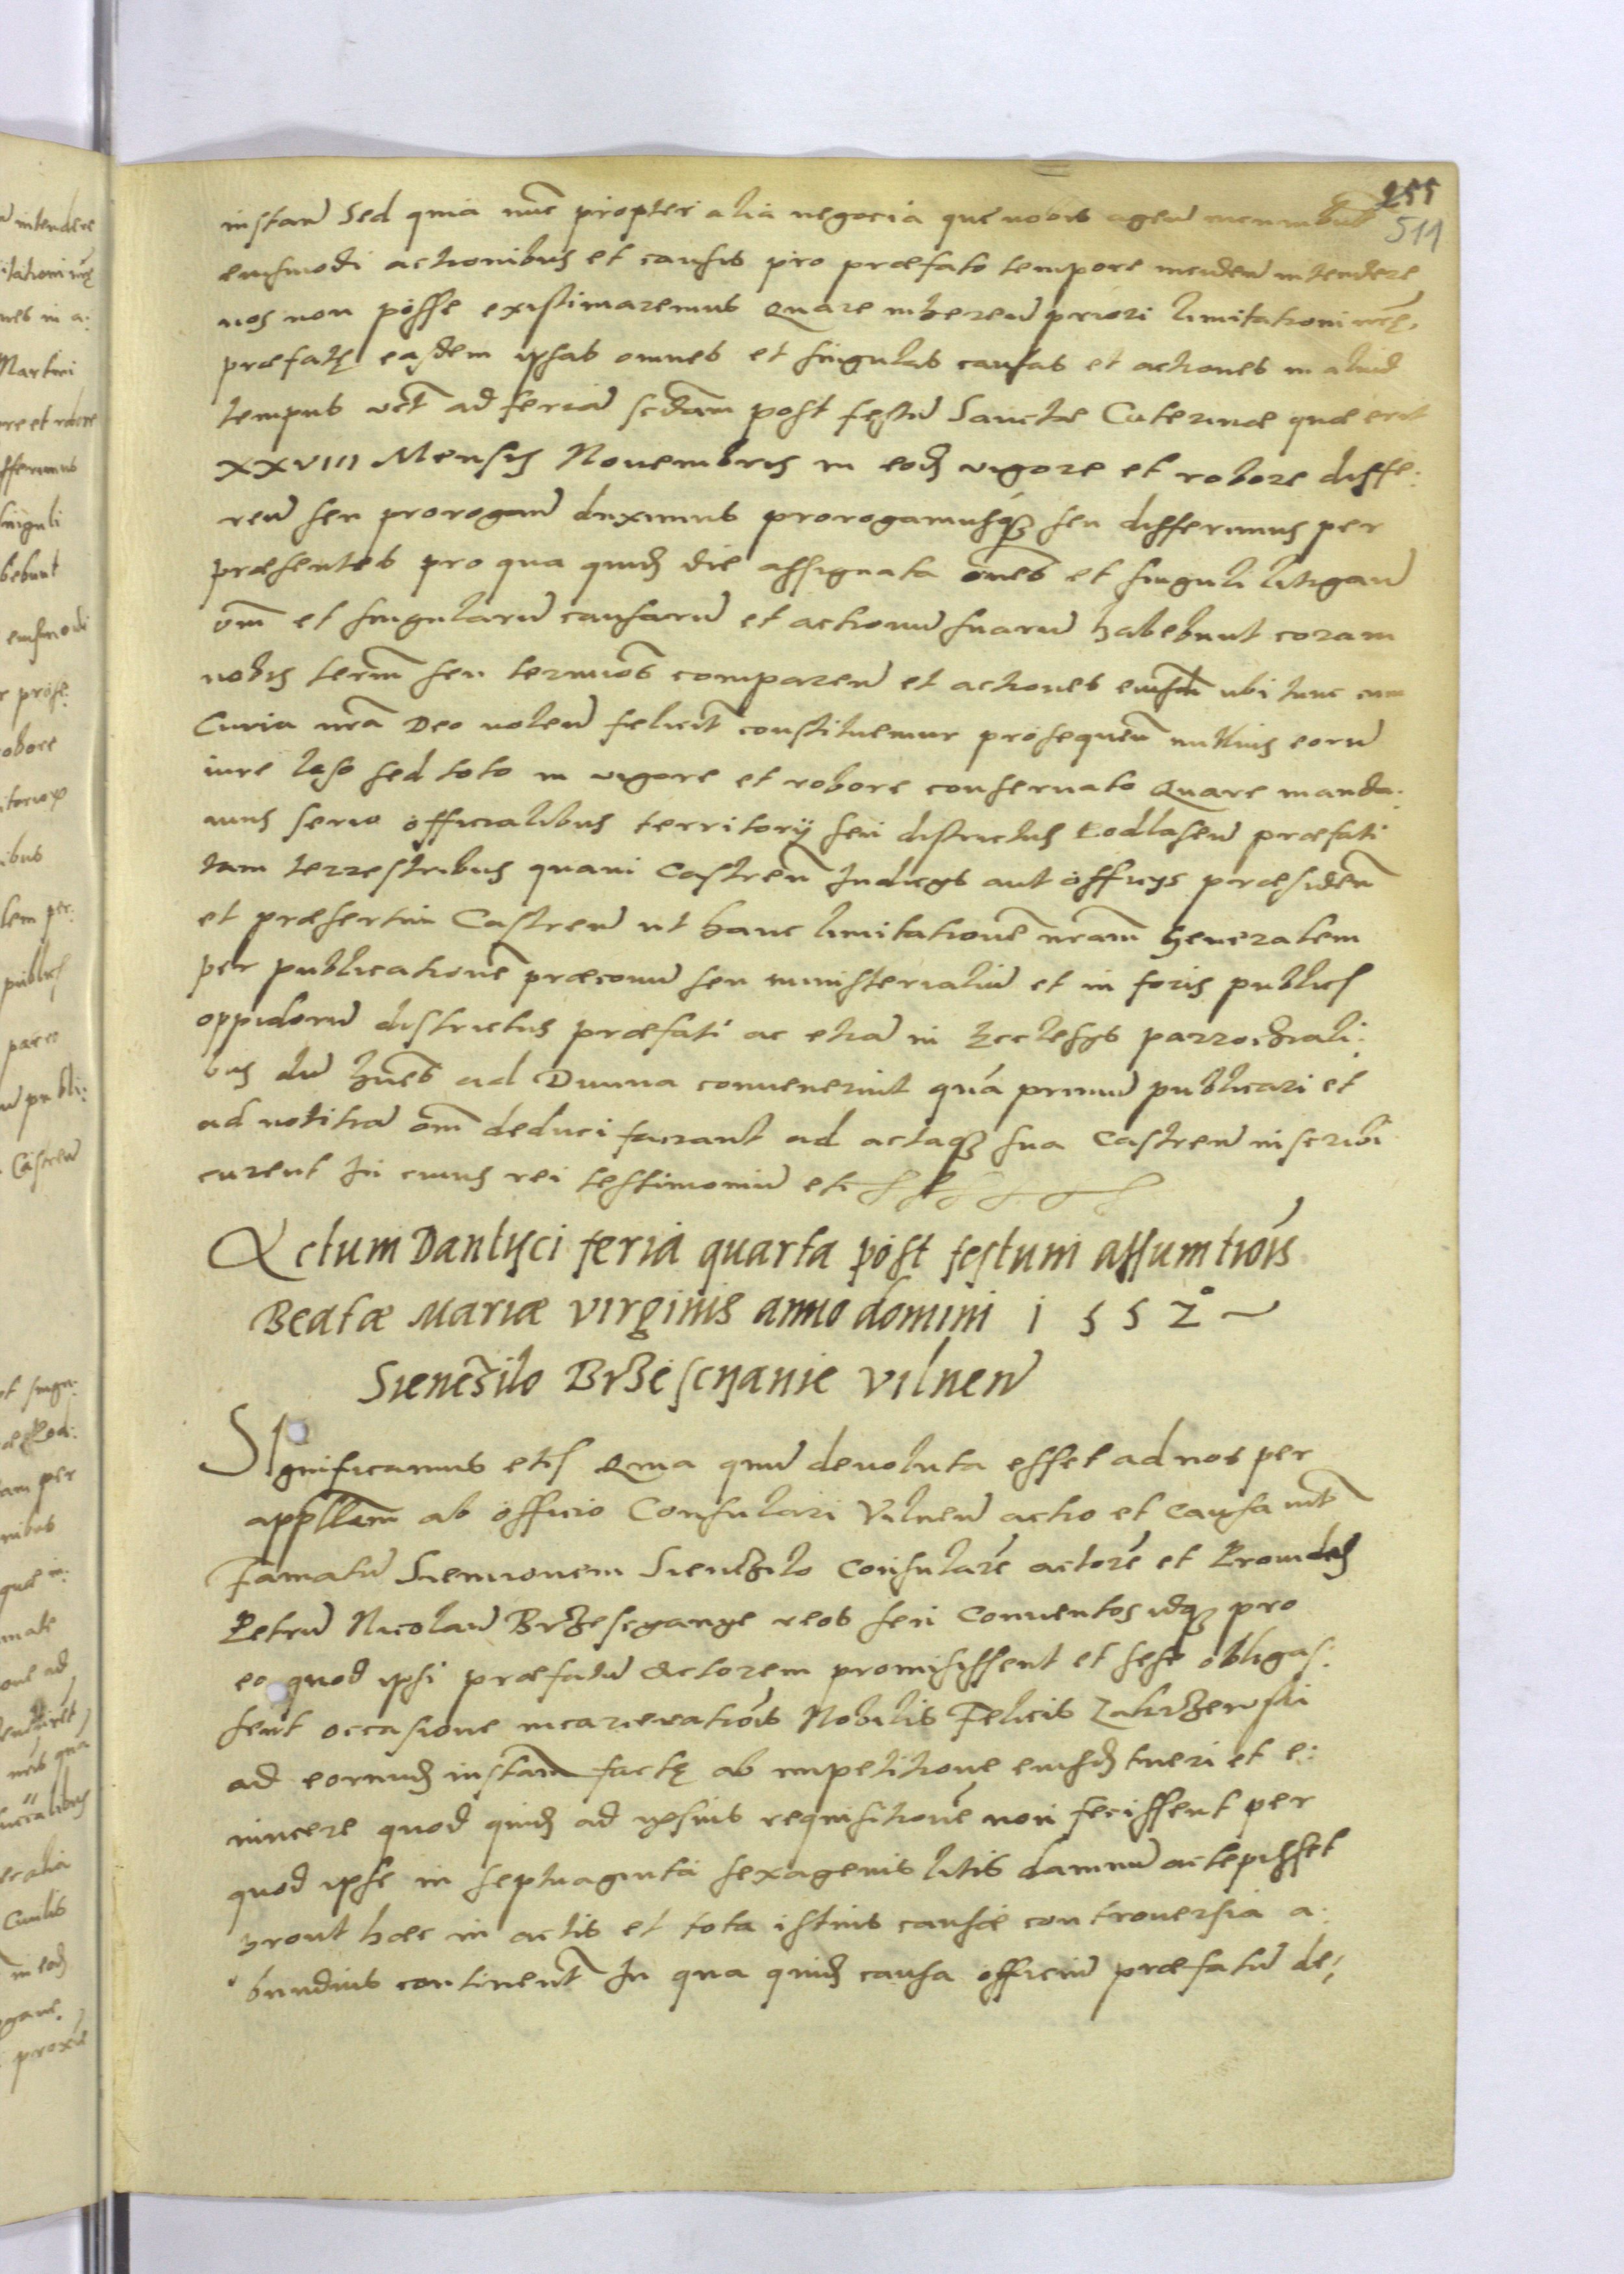 255
511
instan̄ Sed quia nūc propter alia negocia que nobis agen̄ incumbūt
eiusmodi actionibus et causis pro præfato tempore inciden̄ intendere
nos non posse existimaremus Quare inheren̄ priori limitationi nr̄ę
præfatę easdem ipsas omnes et singulas causas et actiones in aliud
tempus vct̄ ad feriā scdām post festū Sanctæ Caterinæ quæ erit
XXVIII Mensis Nouembris in eod̄ vigore et robore diffe:
ren̄ seu prorogan̄ duximus prorogamusq₃ seu differimus per
præsentes pro qua quid̄ die assignata om̄es et singuli litigan̄
om̄ et singularū causarū et actionū suarū habebunt coram
nobis term̄ seu termīos comparen̄ et actiones eiusm̄ ubi tunc cum
Curia nr̄a Deo volen̄ felicit̄ constituemur prosequen̄ nullius eorū
iure leso sed toto in vigore et robore conseruato Quare manda:
mus serio officialibus territorij seu districtus Podlasen̄ præfati
tam terrestribus quam Castren̄ Iudicijs aut officijs præsiden̄
et præsertim Castren̄ ut hanc limitationē nr̄am generalem
per publicationē præconū seu ministerialiū et in foris publicis
oppidorū districtus præfati ac etiā in Ecclesijs parrochiali:
bus dū hōies ad Diuina conuenerint quā primū publicari et
ad notitiā om̄ deduci faciant ad actaq₃ sua Castren̄ inscribi
curent In cuius rei testimoniū etc
Actum Dantisci feria quarta post festum assumtiōis
Beatæ Mariæ virginis anno domini 1552°
Sienczilo Brzescyanie vilnen̄
Significamus etc Quia quū deuoluta esset ad nos per
appllam̄ ab officio Consulari Vilnen̄ actio et causa int̄
Famatū Siemionem Sienczilo Consularē actorē et Prouidos
Petrū Nicolaū Brzescyanye reos seu Conuentos idq₃ pro
eo quod ipsi præfatū Actorem promisissent et sese obligas:
sent occasione incarcerationis Nobilis Felicis Zakrzewski
ad eorund̄ instam̄ factę ab impetitione eiusd̄ tueri et e:
uincere quod quid̄ ad ipsius requisitionē non fecissent per
quod ipse in septuaginta sexagenis litis damnū accepisset
prout hæc in actis et tota istius causæ controuersia a:
bundius continent̄ In qua quid̄ causa officiū præfatū de: